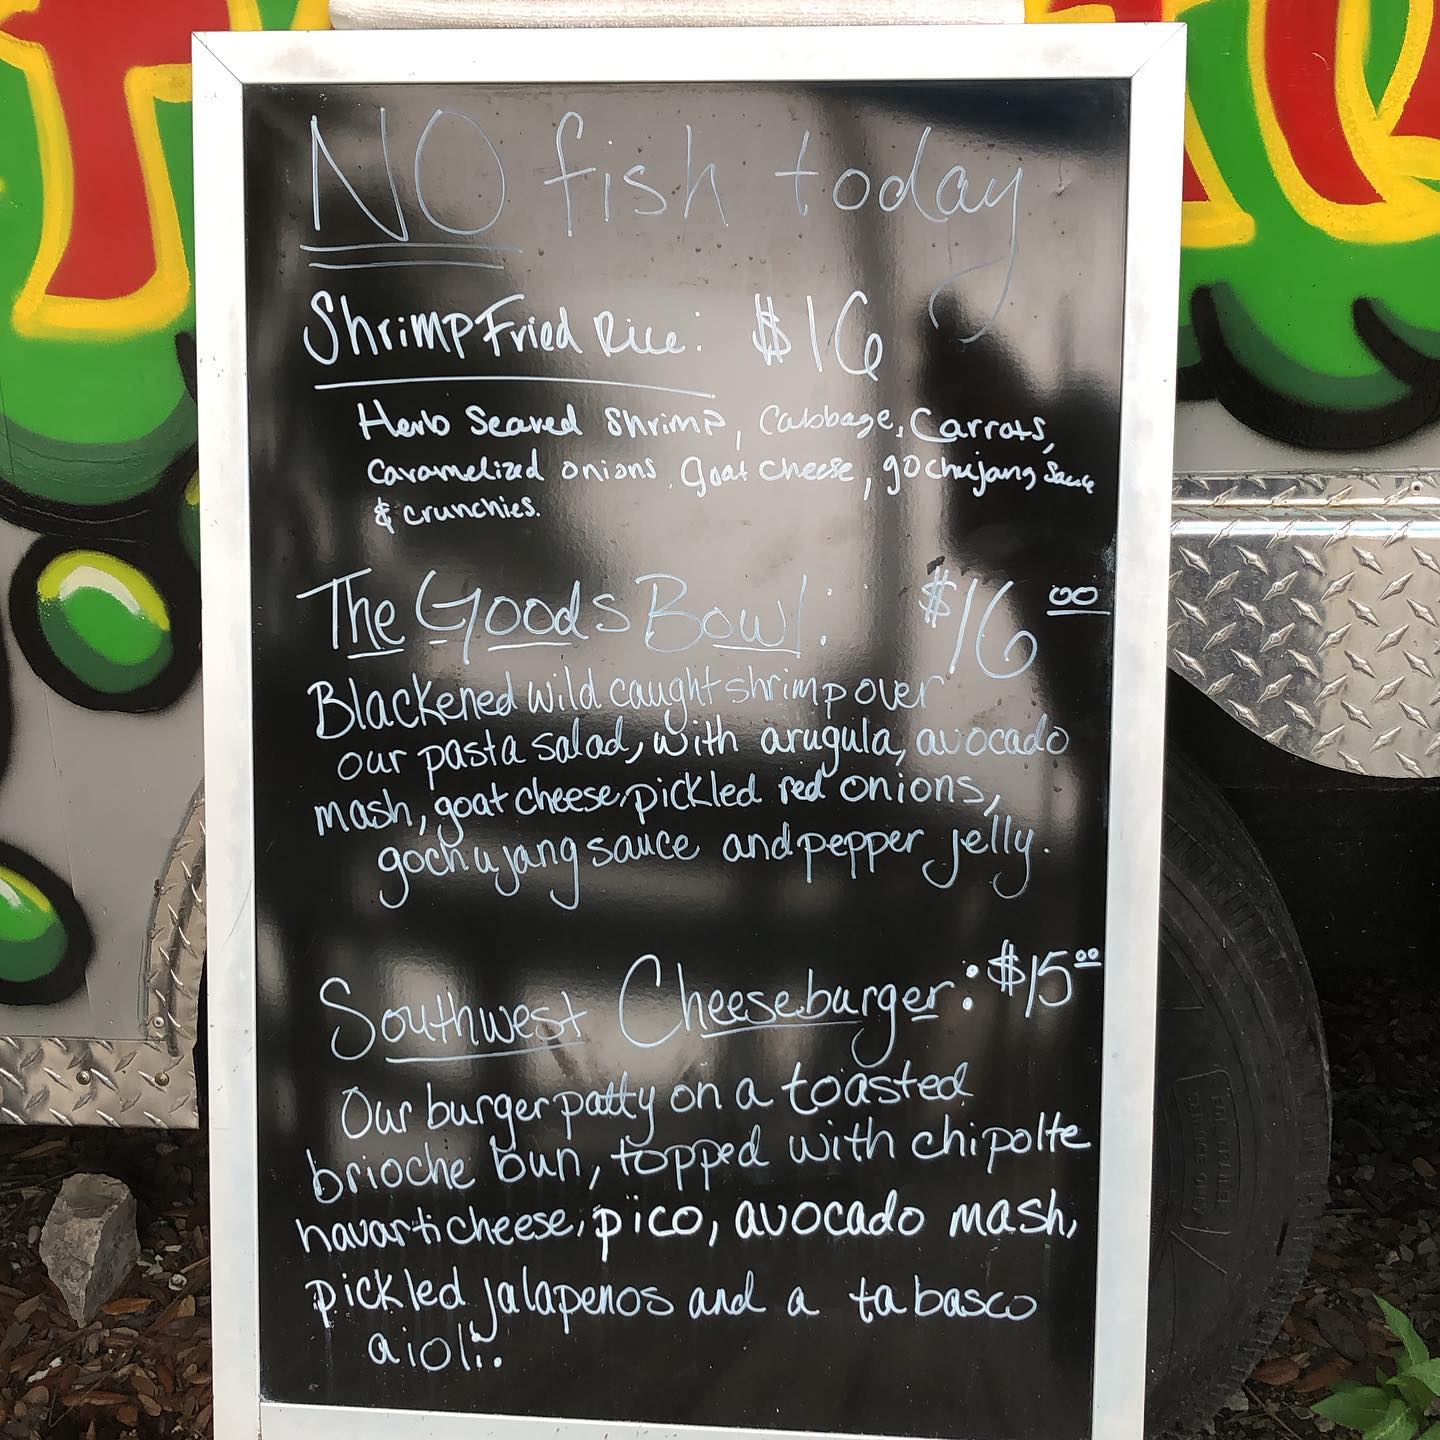 NO fish today
Shrimp Fried Rice: $16
Herb Seared Shrimp, Cabbage, Carrots,
Caramelized onions, goat cheese, gochujang sauce
& crunchies.
The Goods Bowl: $16 00
Blackened wild caught shrimp over
our pasta salad, with arugula, avocado
mash, goat cheese, pickled red onions,
gochujang sauce and pepper jelly.
Southwest Cheeseburger: $15 00
Our burger patty on a toasted
brioche bun, topped with chipolte
havarti cheese, pico, avocado mash,
pickled jalapenos and a tabasco
aioli.